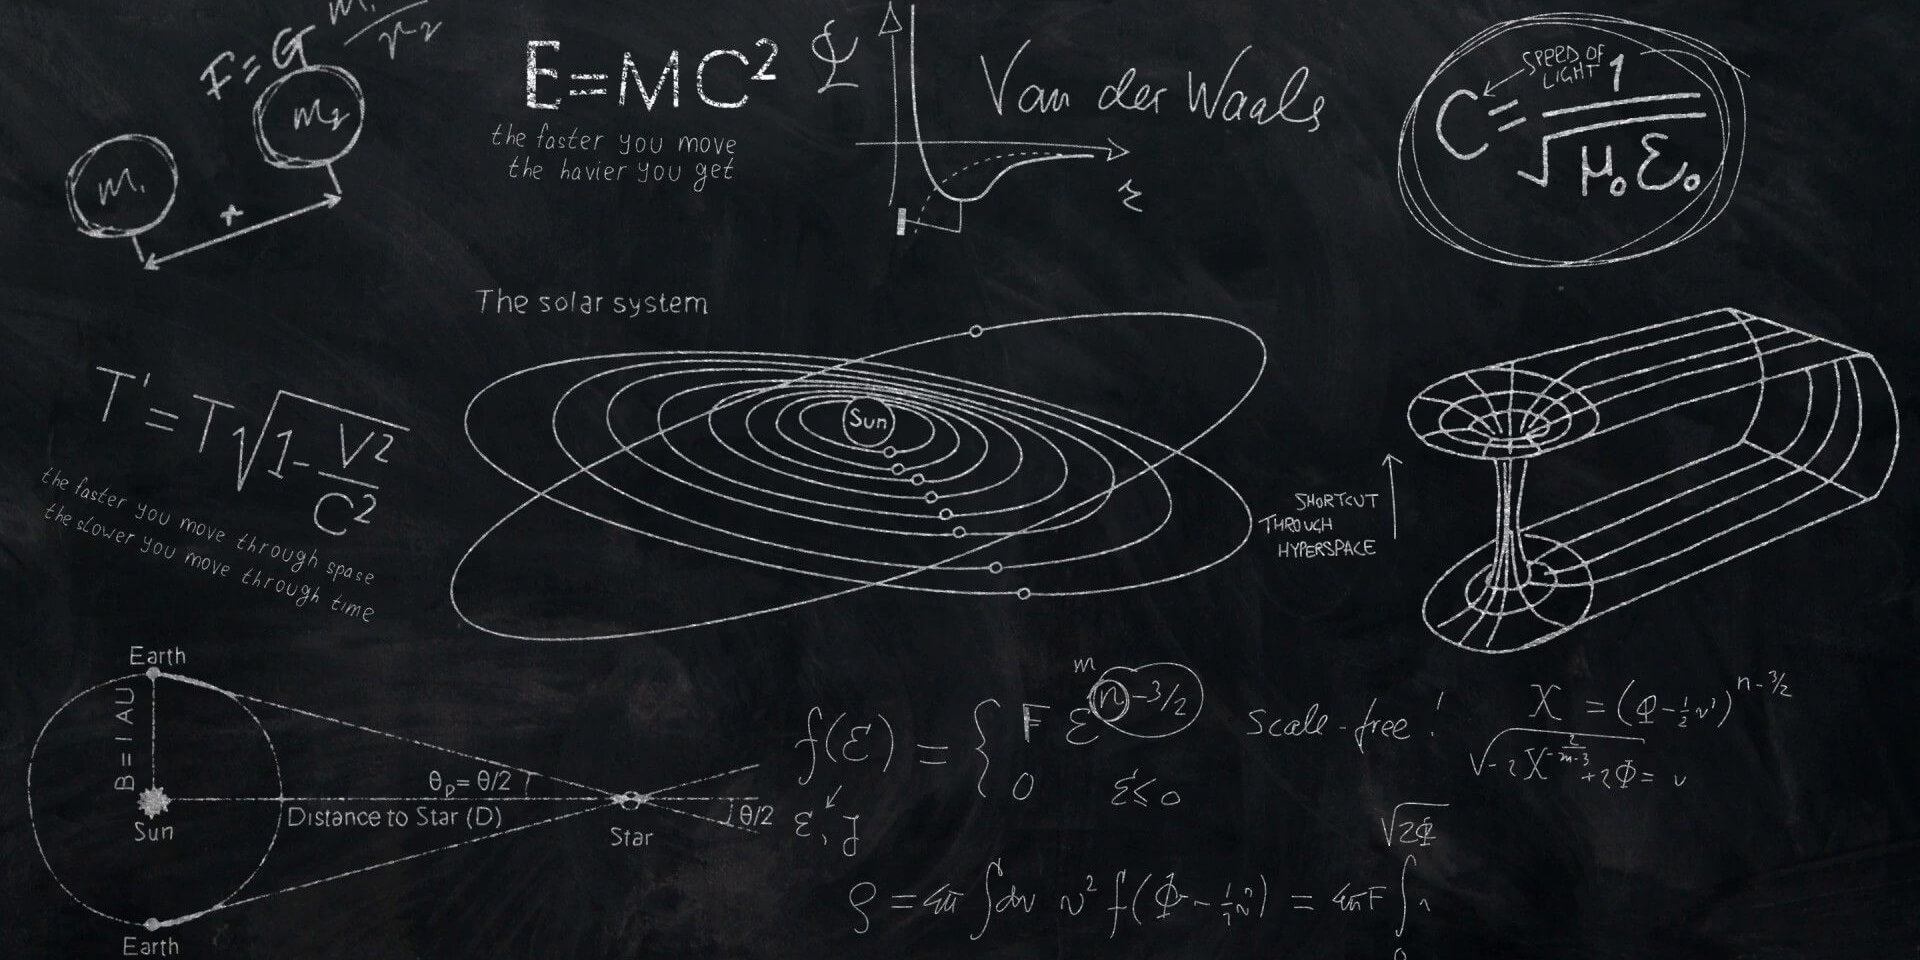 F=G m₁/r2
m₂
m₁
E=MC²
the faster you move
the havier you get
Van der Waals
SPEED OF
LIGHT
C=1/√μ₀ε₀
The solar system
Sun
T'=T√1-V²/C²
the faster you move through spase
the slower you move through time
SHORTCUT
THROUGH
HYPERSPACE
Earth
B=1AU
Sun
Earth
θp=θ/2
Distance to Star (D)
Star
θ/2
m
f(ε) = { F ε n-3/2
0 ε≤0
ε, J
scale-free!
X = (Φ-½v²)ⁿ⁻³/²
√2Φ
ρ = 4π ∫dv v² f(Φ-½v²) = 4πF ∫
0